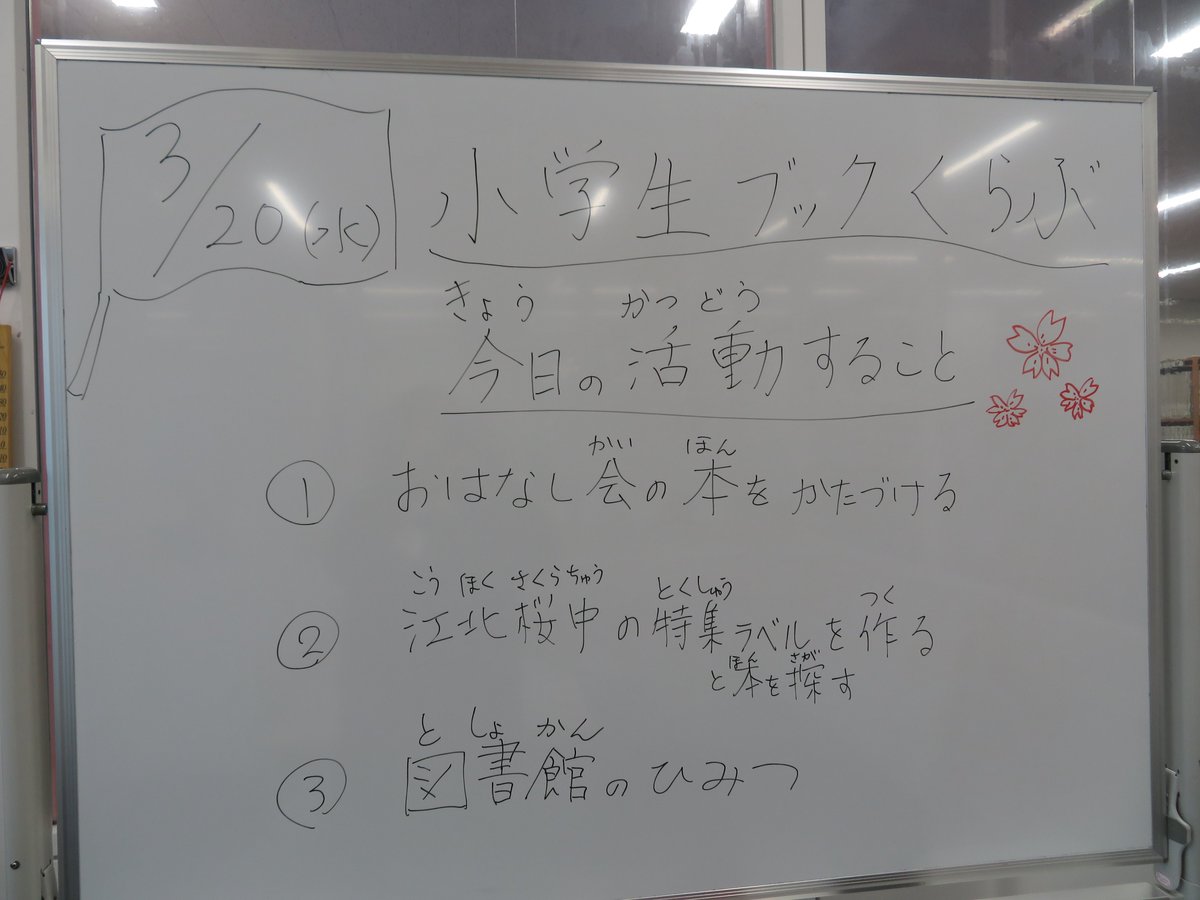 3/20(水) 小学生ブックくらぶ
きょう かつどう
今日の活動すること
かい ほん
① おはなし会の本をかたづける
こう ほく さくらちゅう とくしゅう つく
② 江北桜中の特集ラベルを作る
ほん さが
と本を探す
と しょ かん
③ 図書館のひみつ